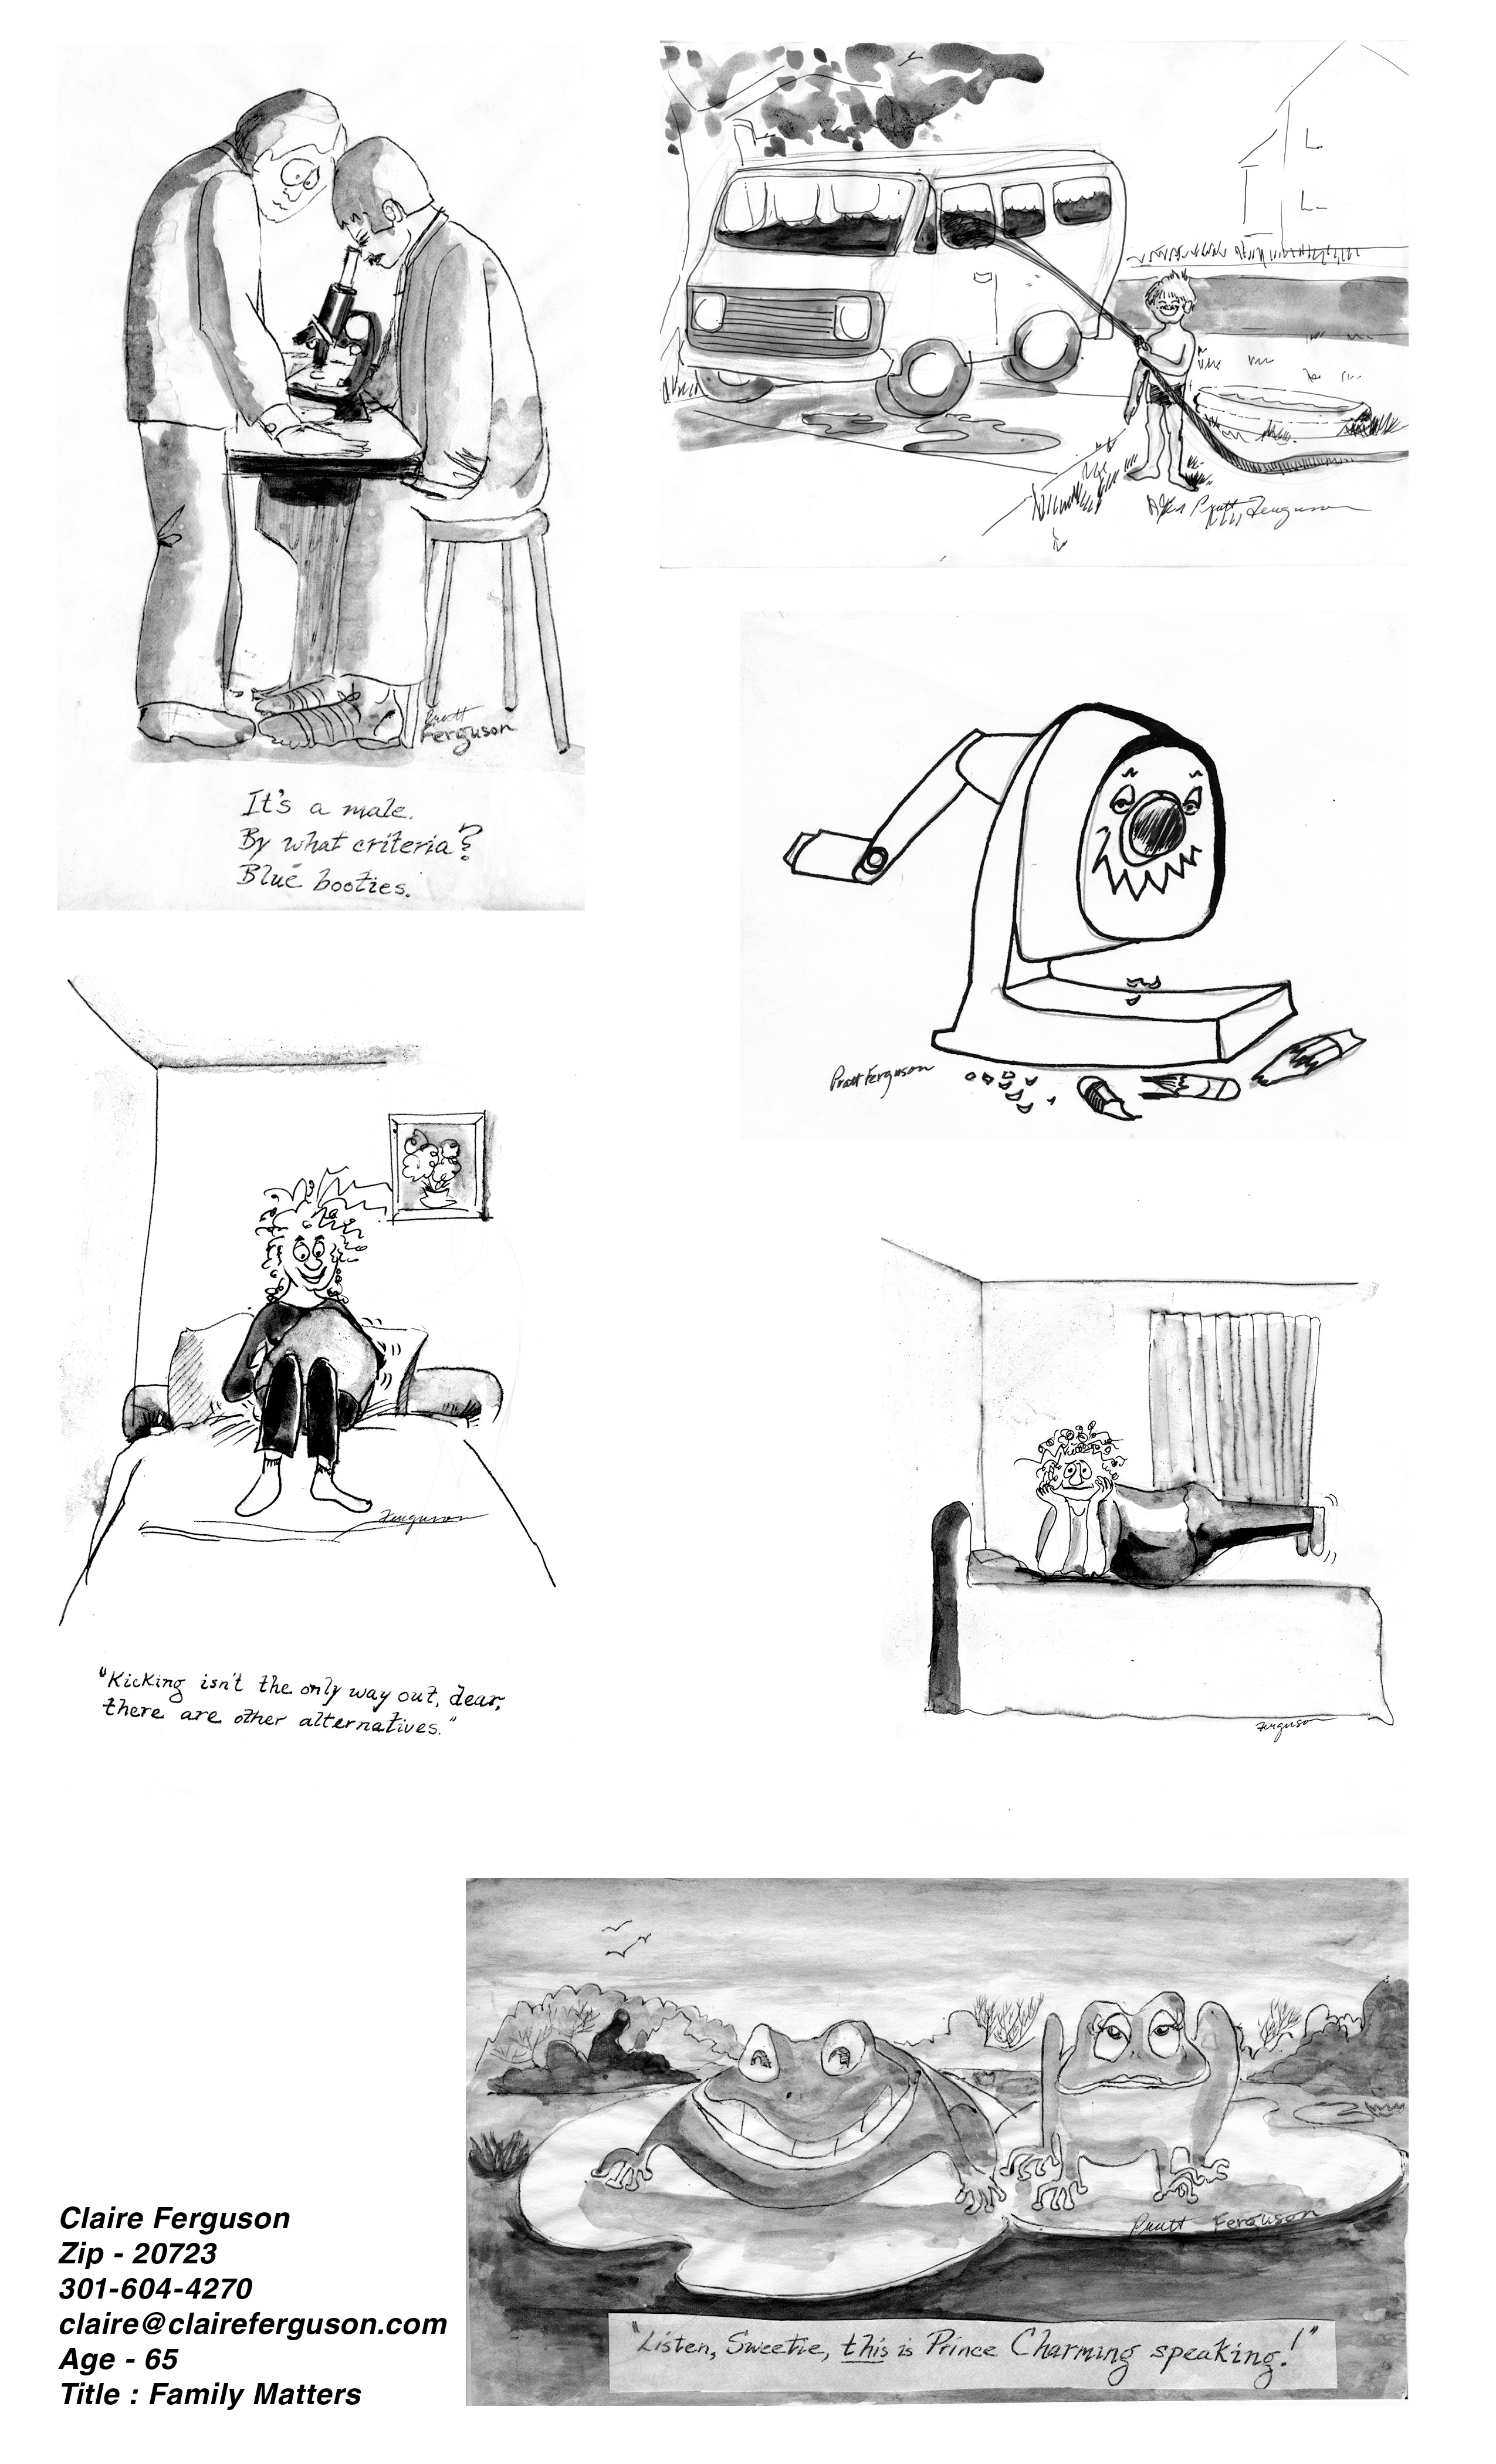 Pratt
Ferguson
It's a male.
By what criteria?
Blue booties.
Pratt Ferguson
Pratt Ferguson
Ferguson
"Kicking isn't the only way out, dear,
there are other alternatives."
Ferguson
Pratt Ferguson
"Listen, Sweetie, this is Prince Charming speaking!"
Claire Ferguson
Zip - 20723
301-604-4270
claire@claireferguson.com
Age - 65
Title : Family Matters